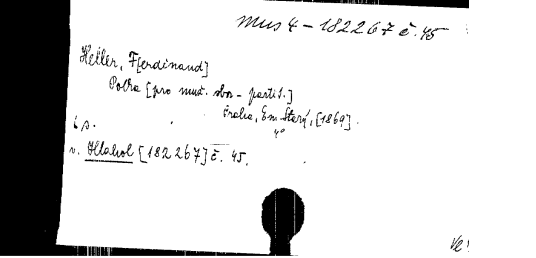 Mus 4 - 182267 č. 45
Heller, F[erdinand]
Polka [pro muž. sbor - partit.]
Praha, Em. Starý, [1869].
4°
6 s.
v. Hlahol [182267] č. 45.